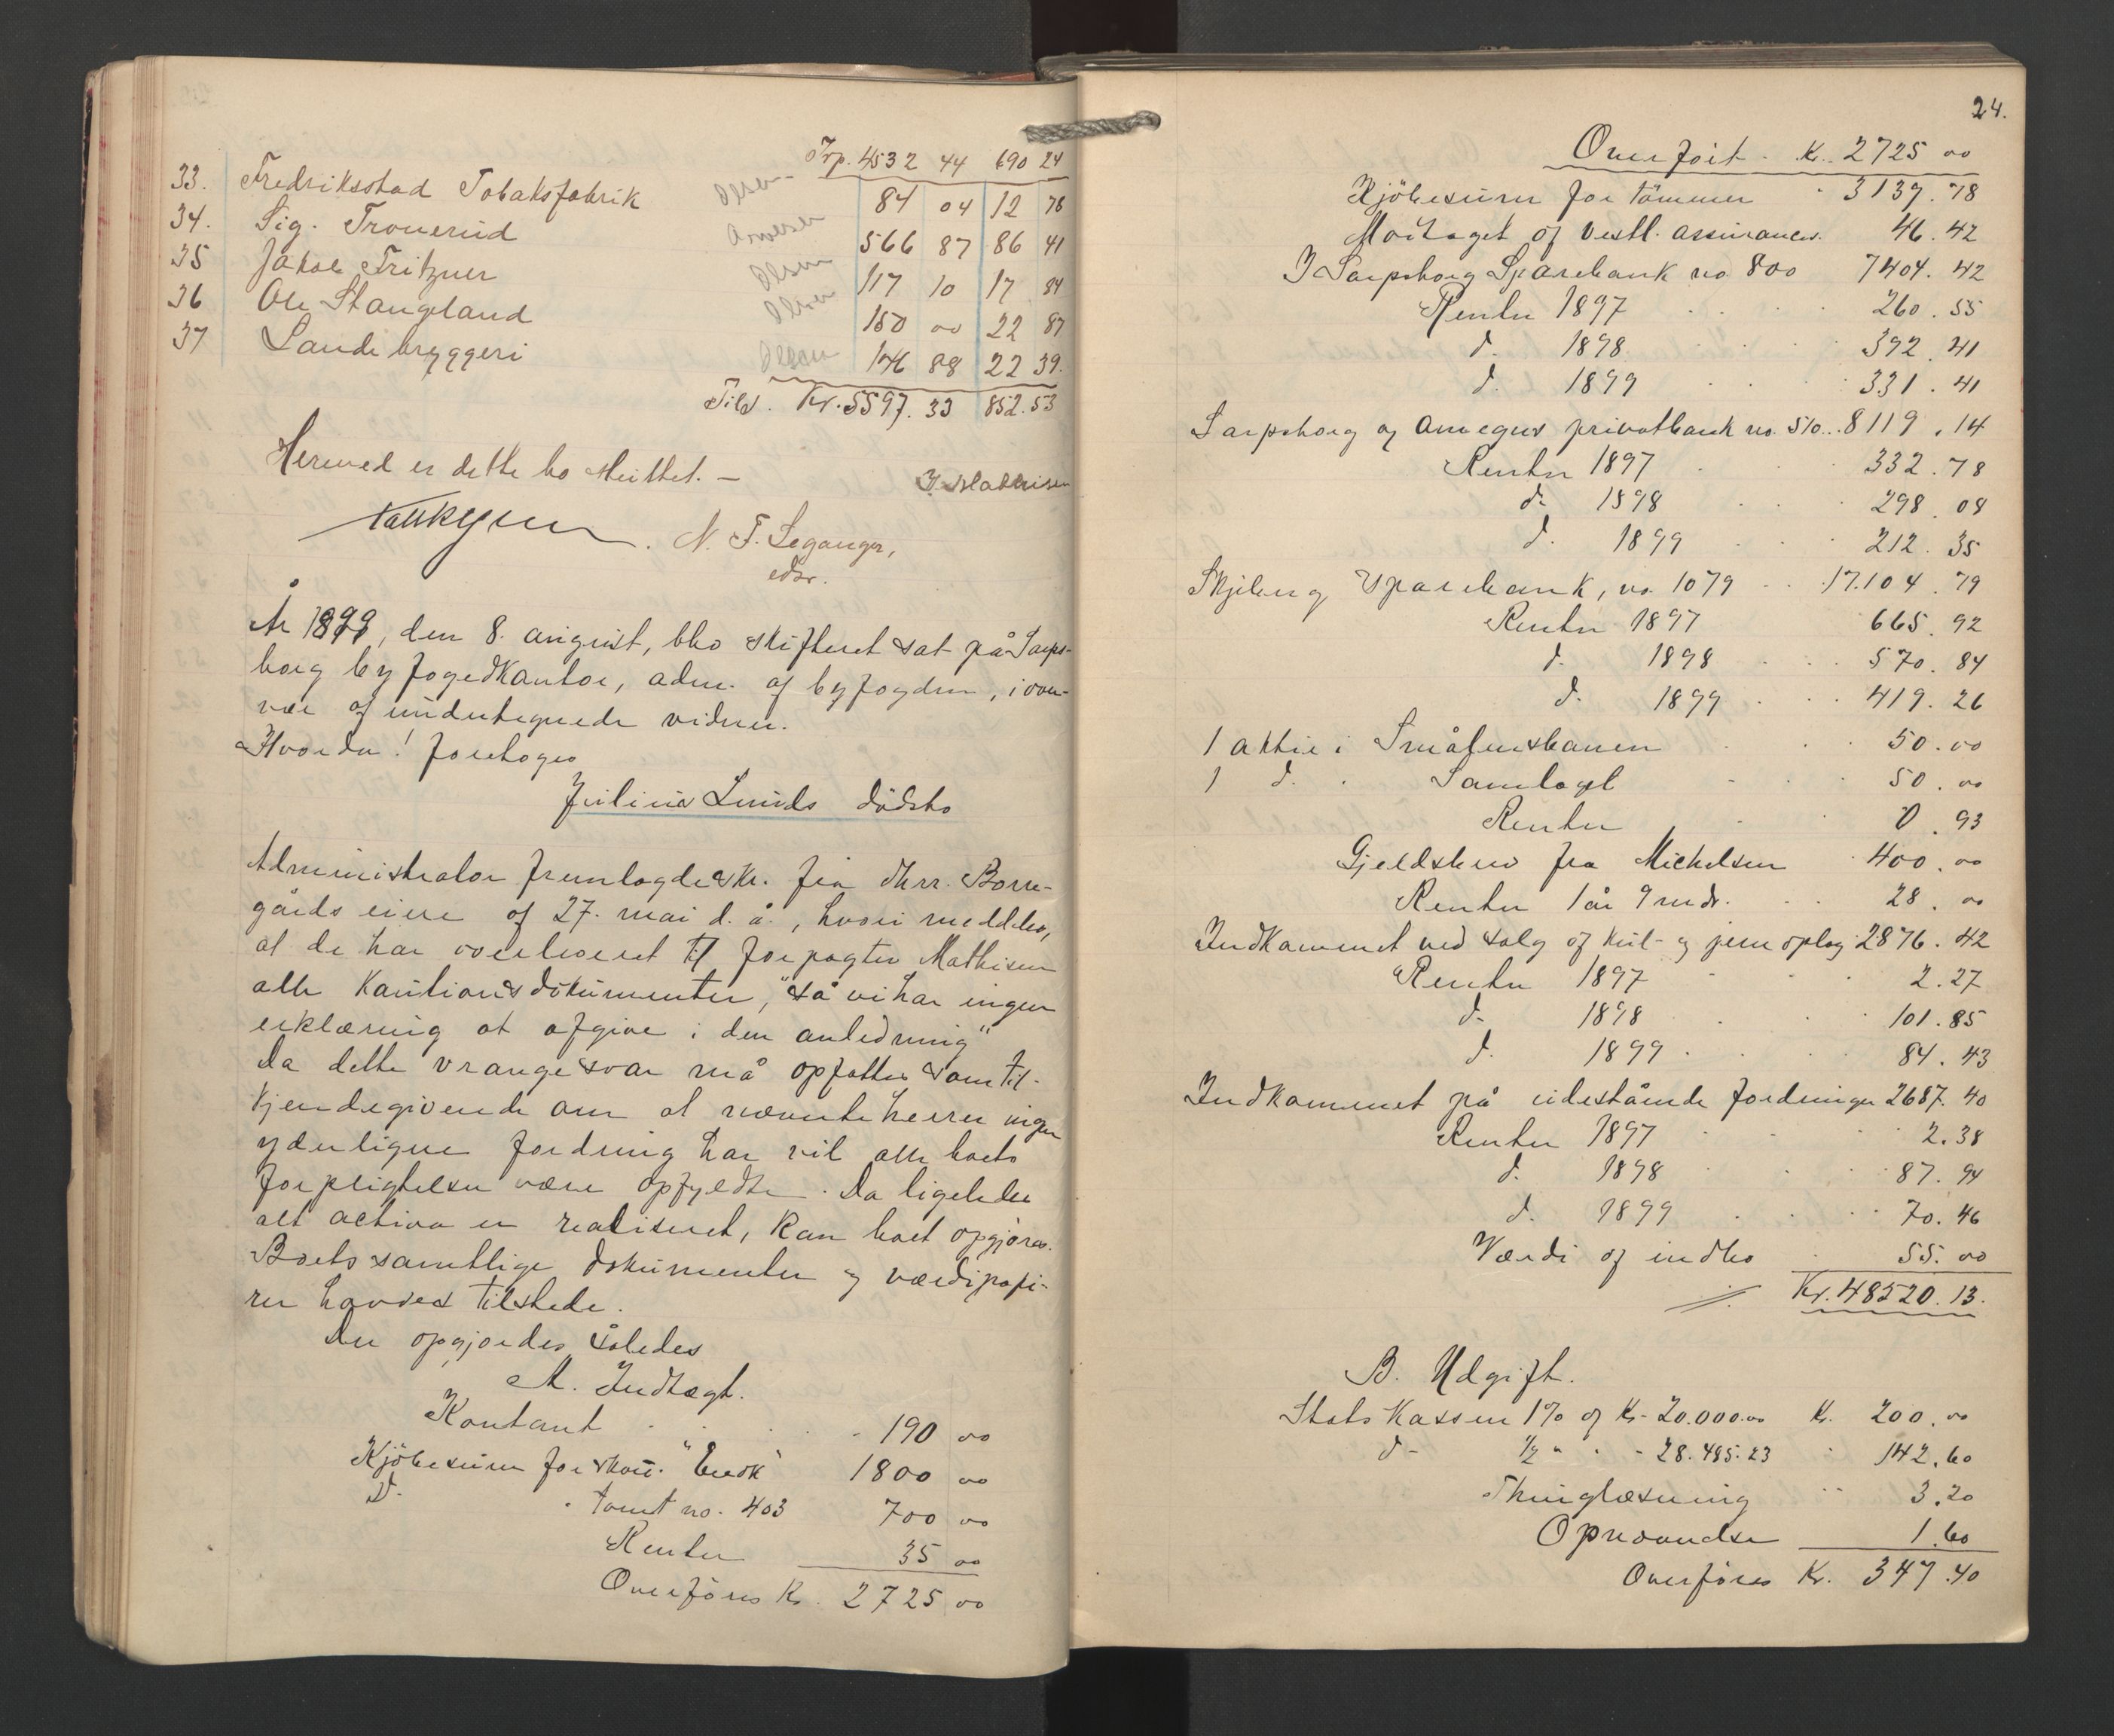 Trp. 4532 44 690 24
33. Fredriksstad Tobaksfabrik Olsen 84 04 12 78
34. Sig. Tronerud 566 87 86 41
35 Jakob Fritzner Olsen 117 10 17 84
36 Ole Stangeland Olsen 150 00 22 87
37 Sande bryggeri Olsen 146 88 22 39.
Tils. Kr. 5597. 33 852. 53
Herved er dette bo sluttet. —
J. Mathisen
N. F. Leganger,
edsv.
År 1899, den 8. august, blev skifteret sat på Sarps-
borg byfogedkontor, adm. af byfogden, i over-
vær af undertegnede vidner.
Hvorda! foretoges
Julius Lunds dödsbo
Administrator fremlagde skr. fra dhrr. Borre-
gårds eiere af 27. mai d. å., hvori meddeles,
at de har overleveret til forpagter Mathisen
alle kautionsdokumenter, "så vi har ingen
erklæring at afgive i den anledning"
Da dette vrange svar må opfattes som til-
kjendegivende om at nævnte herrer ingen
yderligere fordring har vil alle boets
forpligtelser være opfyldte. Da ligeledes
alt activa er realiseret, kan boet opgjöres.
Boets samtlige dokumenter og værdipapi-
rer havdes tilstede.
Der opgjordes således
A. Indtægt.
Kontant 190 00
Kjöbesum for "Enok" 1800 00
D. " tomt no. 403 700 00
Renter 35 00
Overföres Kr. 2725 00
24.
Overfört Kr. 2725 00
Kjöbesum for tömmer 3137. 78
Modtaget af vestl. assurance. 46. 42
I Sarpsborg Sparebank no 800 7404. 42
Renter 1897 260. 55
d. 1898 392. 41
d. 1899 331. 41
Sarpsborg og omegns privatbank no. 510.. 8119. 14
Renter 1897 332. 78
d. 1898 298. 08
d. 1899 212. 35
Skjeberg Sparebank, no 1079 17.104. 79
Renter 1897 665. 92
d. 1898 570. 84
d. 1899 419. 26
1 aktie i Smålensbanen 50. 00
1 d. " Samlaget 50. 00
Renter 0. 93
Gjeldsbrev fra Michelsen 400. 00
Renter 1 år 9 mdr. 28. 00
Indkommet ved salg af kul- og jernoplag 2876. 42
Renter 1897 2. 27
d. 1898 101. 85
d. 1899 84. 43
Indkommet på udestående fordringer 2687. 40
Renter 1897 2. 38
d. 1898 87. 94
d. 1899 70. 46
Værdi af indbo 55. 00
Kr. 48520. 13.
B. Udgift.
Statskassen 1% af Kr. 20.000.00 Kr. 200. 00
d. ½ " " 28.485.23 142. 60
Thinglæsning 3. 20
Opnevnelse 1. 60
Overföres Kr. 347. 40